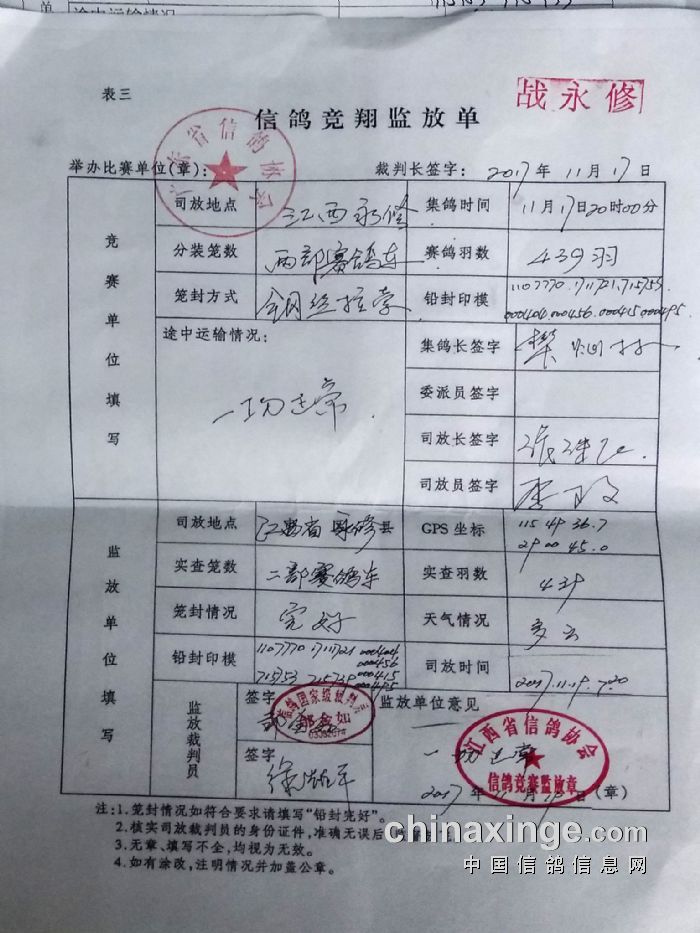 单 途中运输情况
表三
战永修
信鸽竞翔监放单
广东省信鸽协会
举办比赛单位(章): 裁判长签字: 2017年11月17日
竞赛单位填写
司放地点 江西永修 集鸽时间 11月17日20时00分
分装笼数 两部赛鸽车 赛鸽羽数 439羽
笼封方式 钢丝拉索 铅封印模 1107770.1711721.715753.
000404.000456.000415.000495
途中运输情况: 集鸽长签字
一切正常. 委派员签字
司放长签字
司放员签字
监放单位填写
司放地点 江西省永修县 GPS坐标 115 49 36.7
29 00 45.0
实查笼数 二部赛鸽车 实查羽数 439
笼封情况 完好 天气情况 多云
铅封印模 1107770 1711721 000404
000456
715753 715739 000415
000495
司放时间 2017.11.19.7:20
监放裁判员 签字 监放单位意见
信鸽国家级裁判员
签字 一切正常
江西省信鸽协会
信鸽竞赛监放章
2017年11月19日(章)
注:1.笼封情况如符合要求请填写"铅封完好"。
2.核实司放裁判员的身份证件,准确无误后
3.无章、填写不全,均视为无效。
4.如有涂改,注明情况并加盖公章。
chinaxinge.com
中国信鸽信息网